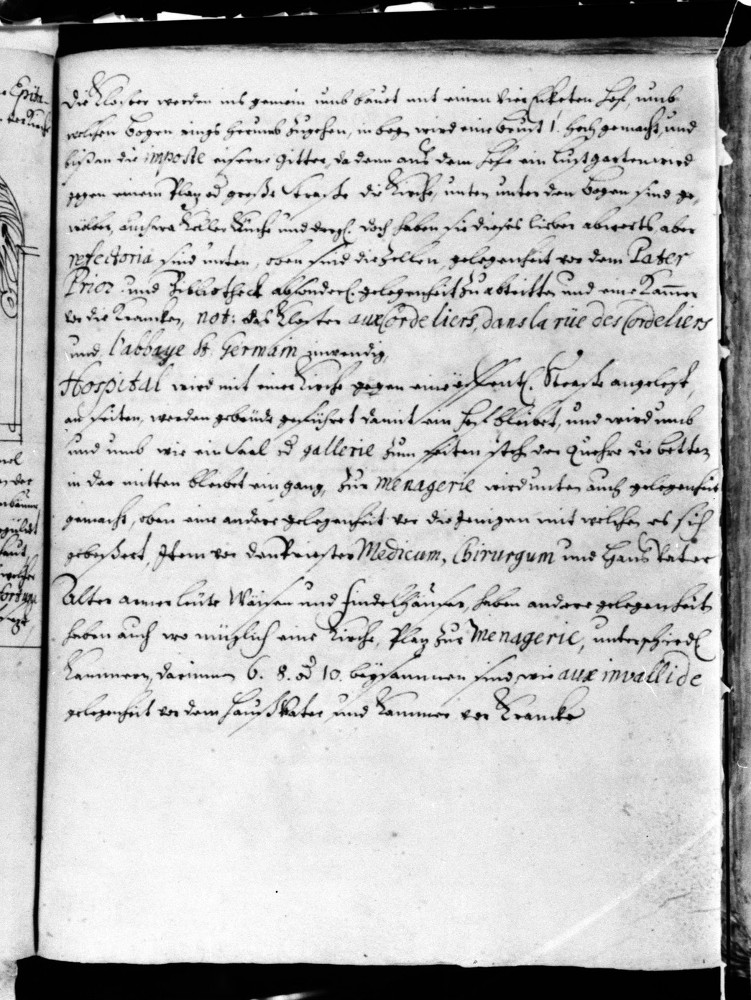 Die Klöster werden ins gemein umb bauet mit einen Vierecketen Hof, umb
welchen Bogen rings herumb zugehen, in bogen wird eine brüst 1. hoch gemacht, und
biß an die imposte eiserne gitter, da dann aus dem Hofe ein Lustgarten wird
gegen einem Plaz od große Straße die Kirche, unten unter den bogen sind ge,
wölber, auch wa Keller Küche und dergl. doch haben sie dieses lieber abwerts, aber
refectoria sind unten, oben sind die Zellen, gelegenheit vor dem Pater
Prior und Bibliotheck absonderl. gelegenheit zu abtritten und eine Kam̄er
vor die Krancken, not: das Kloster aux Cordeliers, dans la rüe des Cordeliers
und l'abbaye St. Germain inwendig.
Hospital wird mit einer Kirche gegen eine öffentl. Straße angelegt,
an seiten, werden gebäude geführet damit ein Hof bleibet, und wird umb
und umb wie ein Saal od gallerie zum seiten stehen der Quehre die betten
in der mitten bleibet ein gang, zur menagerie wird unten auch gelegenheit
gemacht, oben eine andere gelegenheit vor die Jenigen mit welchen es sich
gebeßert, Item vor den Priester Medicum, Chirurgum und Haus Vater
Alter armer leüte Wäisen und findelhäuser, haben andere gelegenheit
haben auch wo müglich eine Kirche, Plaz zur Menagerie, unterschiedl.
Kammern, darinnen 6. 8. od 10. beysammen sind, wie aux invallide
gelegenheit vor dem Hauß Vater und Kammer vor Krancke